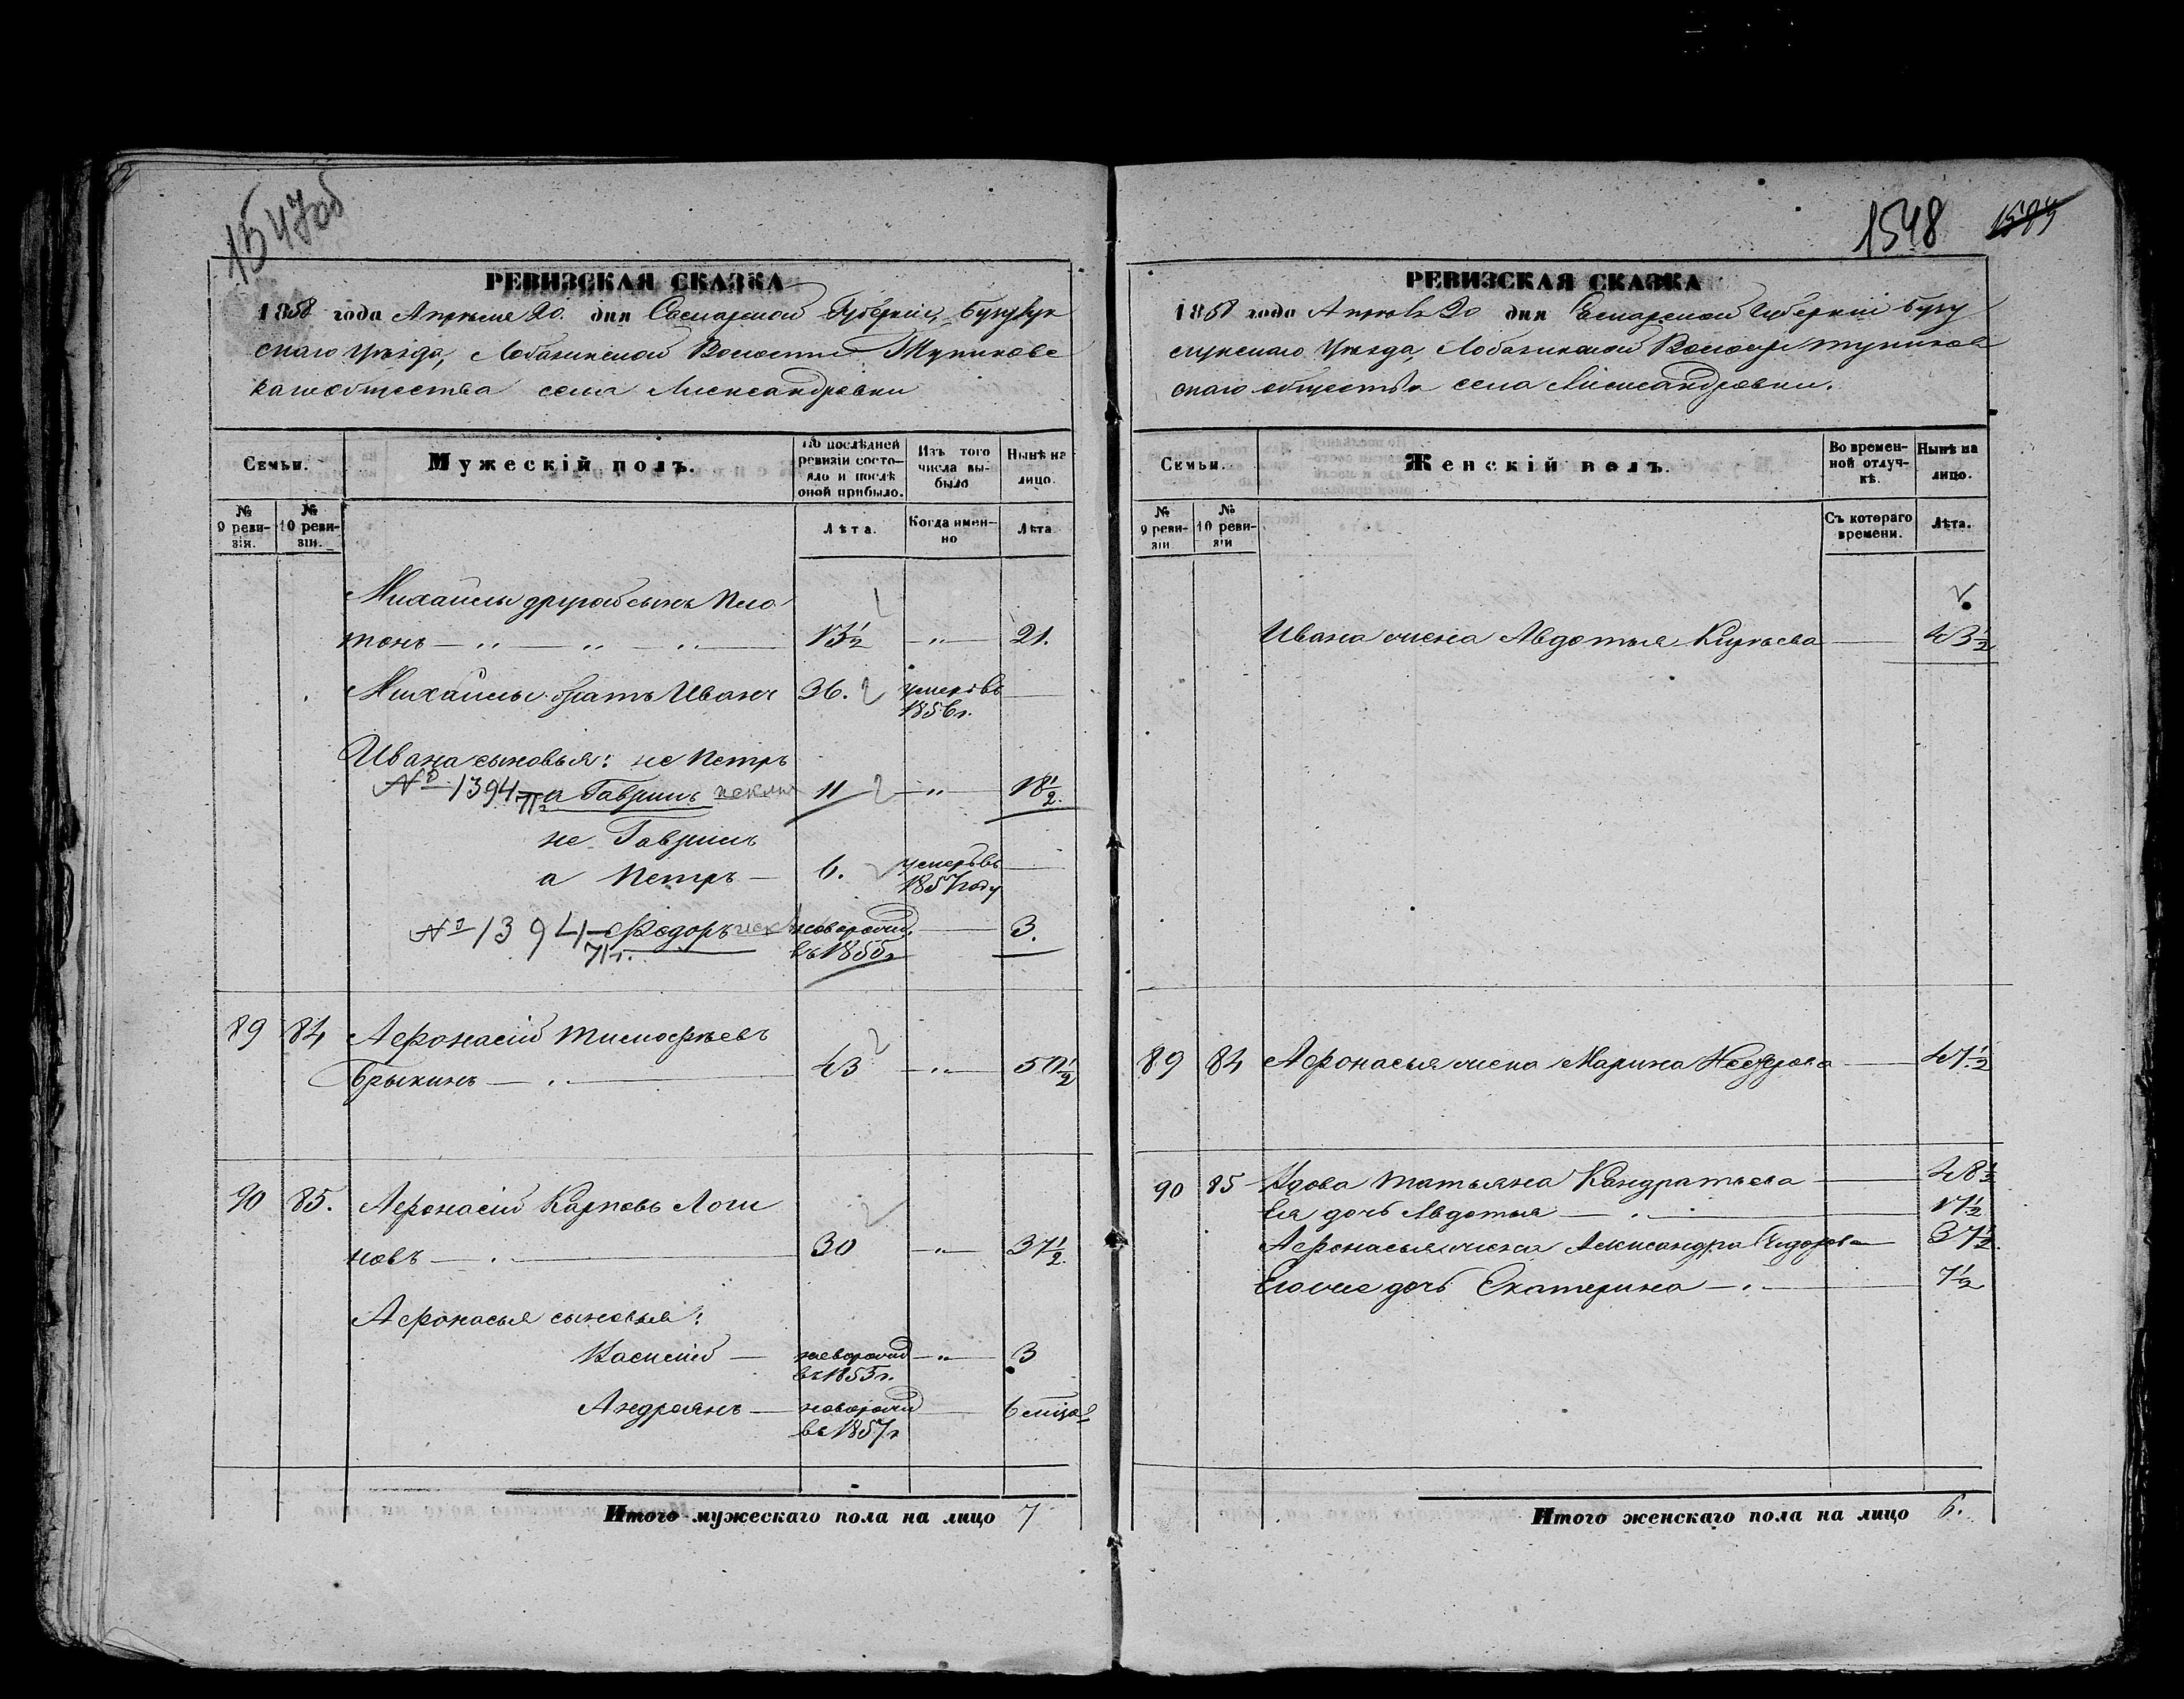 1547об
РЕВИЗСКАЯ СКАЗКА
1858 года Апреля 20 дня Самарской Губернии, Бугурус
скаго Уезда, Лобазинской Волости Тупиковс
кагообщества села Александровки
Семьи.
Мужескій полъ.
По послѣдней ревизіи состояло и послѣ оной прибыло.
Изъ того числа выбыло
Нынѣ на лицо.
№ 9 ревизіи.
№ 10 ревизіи.
Лѣта.
Когда именно
Лѣта
Михайлы другой сынъ Пло
тонъ — „ — „ — „ — 13½ — „ — 21.
Михайлы братъ Иванъ 36. умеръ въ 1856 г. —
Ивана сыновья: не Петръ
№ 1394 71 а Гаврилъ исклю 11 — „ — 18½.
не Гаврилъ
а Петръ — 6. умеръ въ 1857 году —
№ 1394 71 г. Федоръ искл новорожд. въ 1855 г — 3.
89 84 Афонасій Тимофѣевъ
Брыкинъ — „ — 43 — „ — 50½
90 85. Афонасій Карповъ Логи
новъ — . — 30 — „ — 37½.
Афонасья сыновья:
Василій — новорожд въ 1855 г. — „ — 3
Андроянъ — новорожд въ 1857 г — 6 мѣсц
Итого мужескаго пола на лицо 7
1548
РЕВИЗСКАЯ СКАЗКА
1858 года Апреля 20 дня Самарской Губерніи Бугу
скаго Уезда, Лобазинской Волости Тупиков
скаго общества села Александровки.
Семьи.
Женскій полъ.
Во временной отлучкѣ.
Нынѣ на лицо.
№ 9 ревизіи
№ 10 ревизіи
Съ котораго времени.
Лѣта.
Ивана жена Авдотья Кирѣева — 43½
89 84 Афонасья жена Марина — 47½
90 85 Вдова Татьяна Кандратьева — 48½
Ея дочь Авдотья — . — 17½
Афонасья жена Александра Сидорова — 37½.
Егоже дочь Екатерина — „ — 7½
Итого женскаго пола на лицо 6.